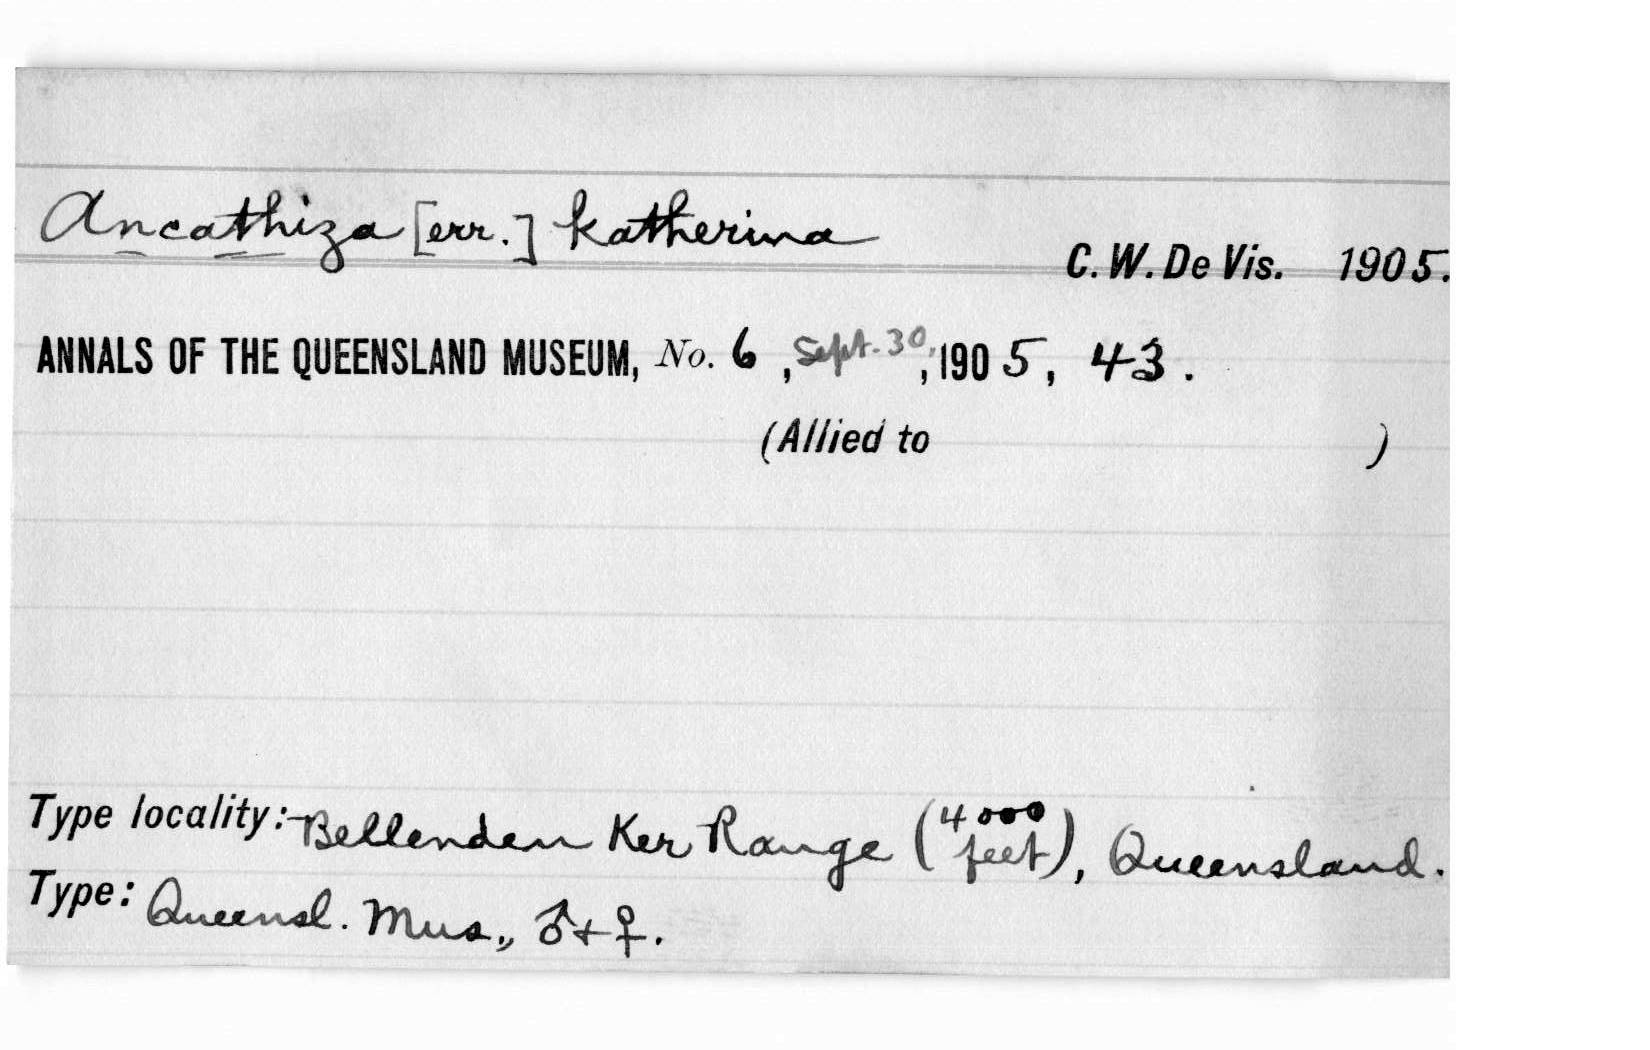 Ancathiza [err.] katherina
C. W. De Vis. 1905.
ANNALS OF THE QUEENSLAND MUSEUM, No. 6, Sept. 30, , 1905, 43.
(Allied to )
Type locality:- Bellenden Ker Range (4000 feet), Queensland.
Type: Queensl. Mus., ♂ + ♀.